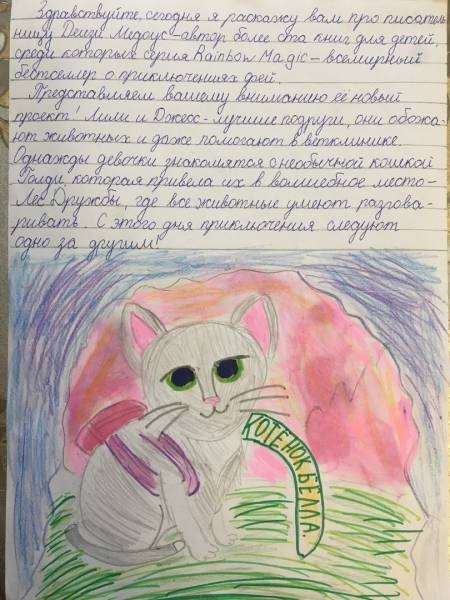 Здравствуйте, сегодня я раскажу вам про писатель
ницу Дейзи Медоус-автор более ста книг для детей,
среди которых серия Rainbow Magic-всемирный
бестселлер о приключениях фей.
Представляем вашему вниманию её новый
проект! Лили и Джесс-лучшие подруги, они обожа-
ют животных и даже помогают в ветклинике.
Однажды девочки знакомятся с необычной кошкой
Голди которая привела их в волшебное место-
Лес Дружбы, где все животные умеют разгова-
ривать. С этого дня приключения следуют
одно за другим!
КОТЁНОК БЕЛЛА.